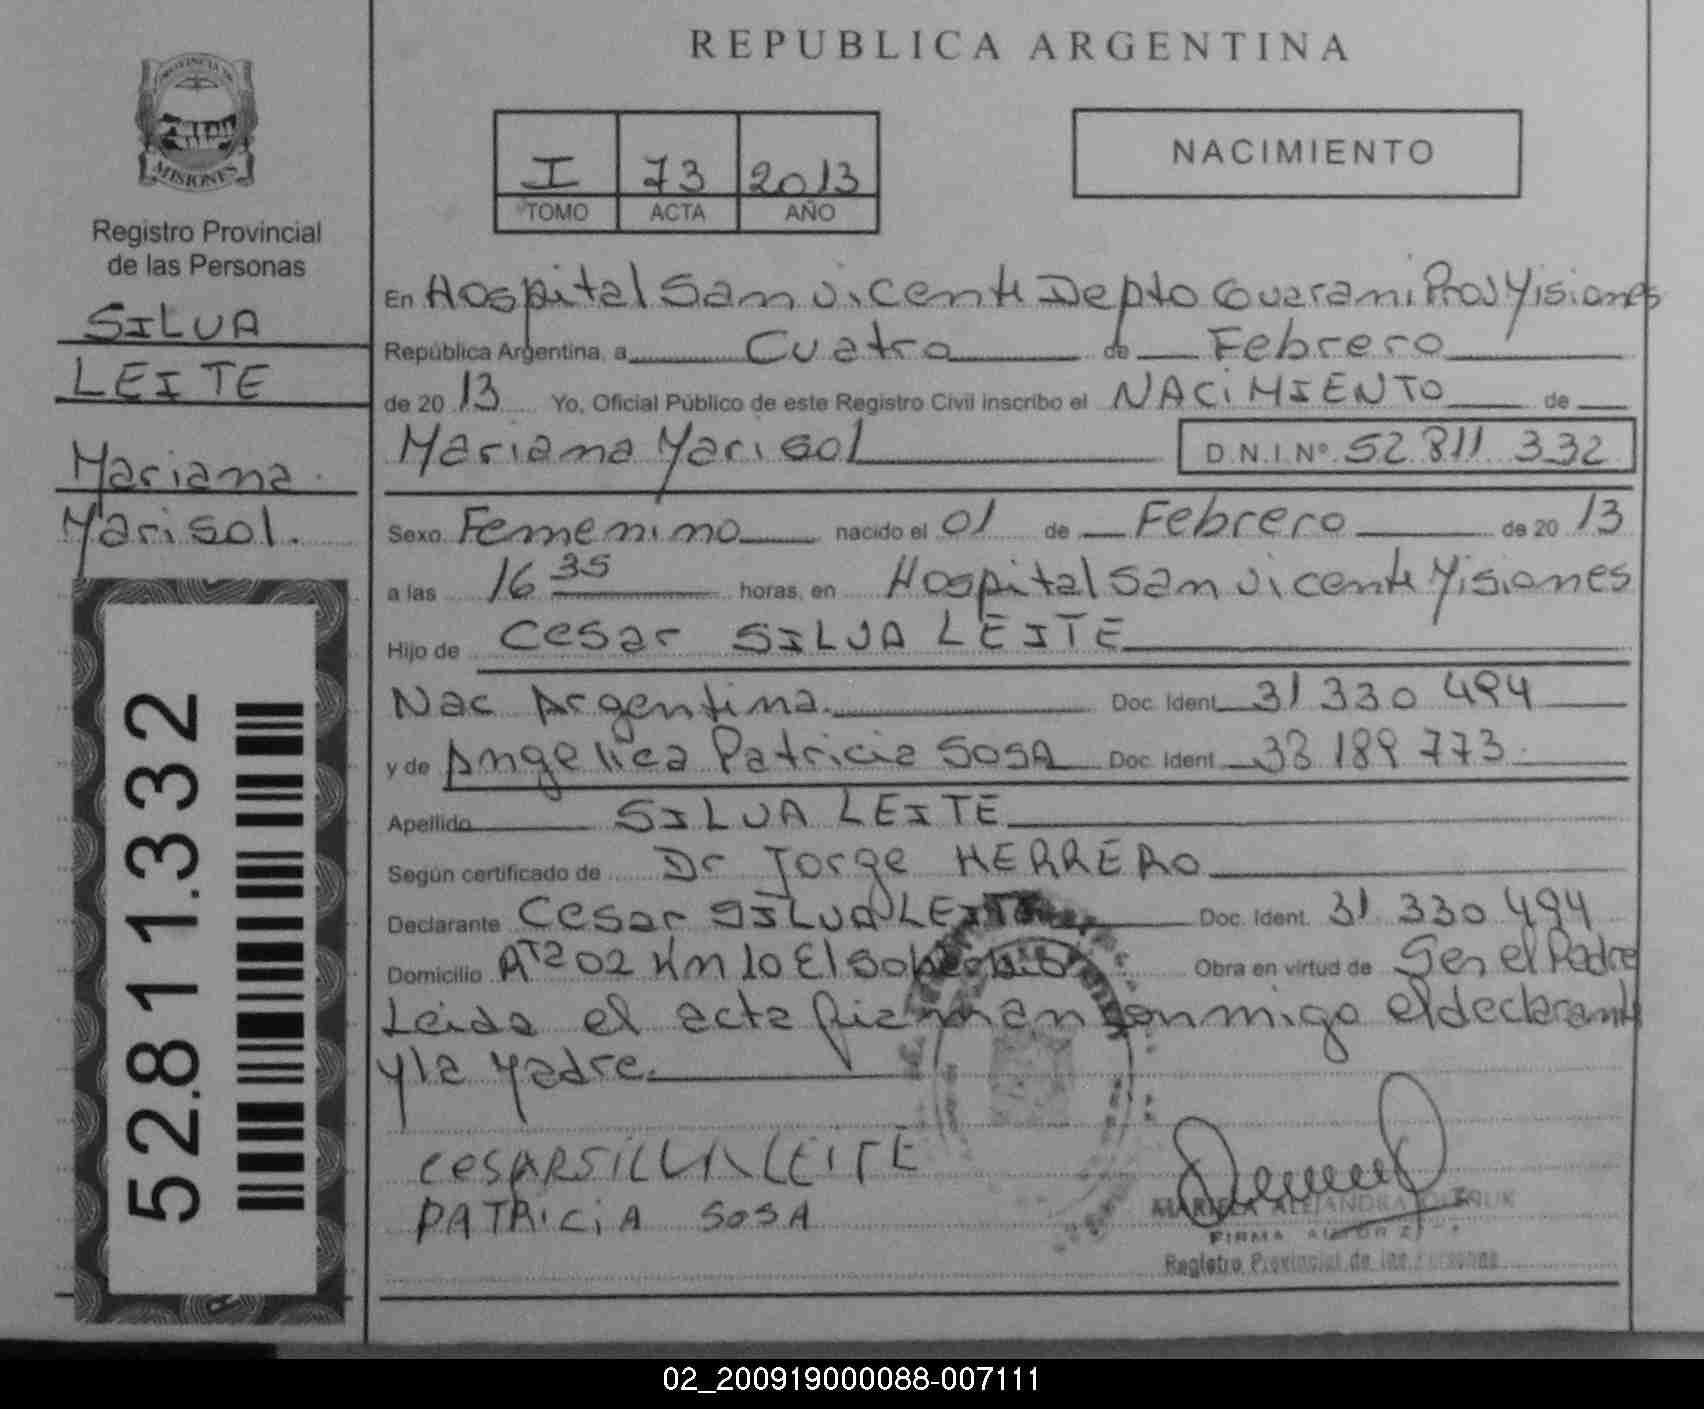 PROVINCIA DE
MISIONES
Registro Provincial
de las Personas
SILVA
LEITE
Mariana
Marisol.
52.811.332
REPUBLICA ARGENTINA
I 73 2013
TOMO ACTA AÑO
NACIMIENTO
En Hospital San Vicente Depto Guarani Prov Misiones
República Argentina, a Cuatro de Febrero
de 20 13 Yo, Oficial Público de este Registro Civil inscribo el NACIMIENTO de
Mariana Marisol D.N.I. Nº 52 811 332
Sexo Femenino nacido el 01 de Febrero de 20 13
a las 16 35 horas, en Hospital San Vicente Misiones
Hijo de Cesar SILVA LEITE
Nac Argentina. Doc. Ident. 31 330 494
y de Angelica Patricia SOSA Doc. Ident. 33 189 773
Apellido SILVA LEITE
Según certificado de Dr Jorge HERRERO
Declarante Cesar SILVA LEITE Doc. Ident. 31 330 494
Domicilio Km 10 El Obra en virtud de Ser el Padre
Leida el acta firman conmigo el declarante
y la Madre.
CESAR SILVA LEITE
PATRICIA SOSA
MARIELA ALEJANDRA
FIRMA
Registro Provincial de las Personas
02_200919000088-007111